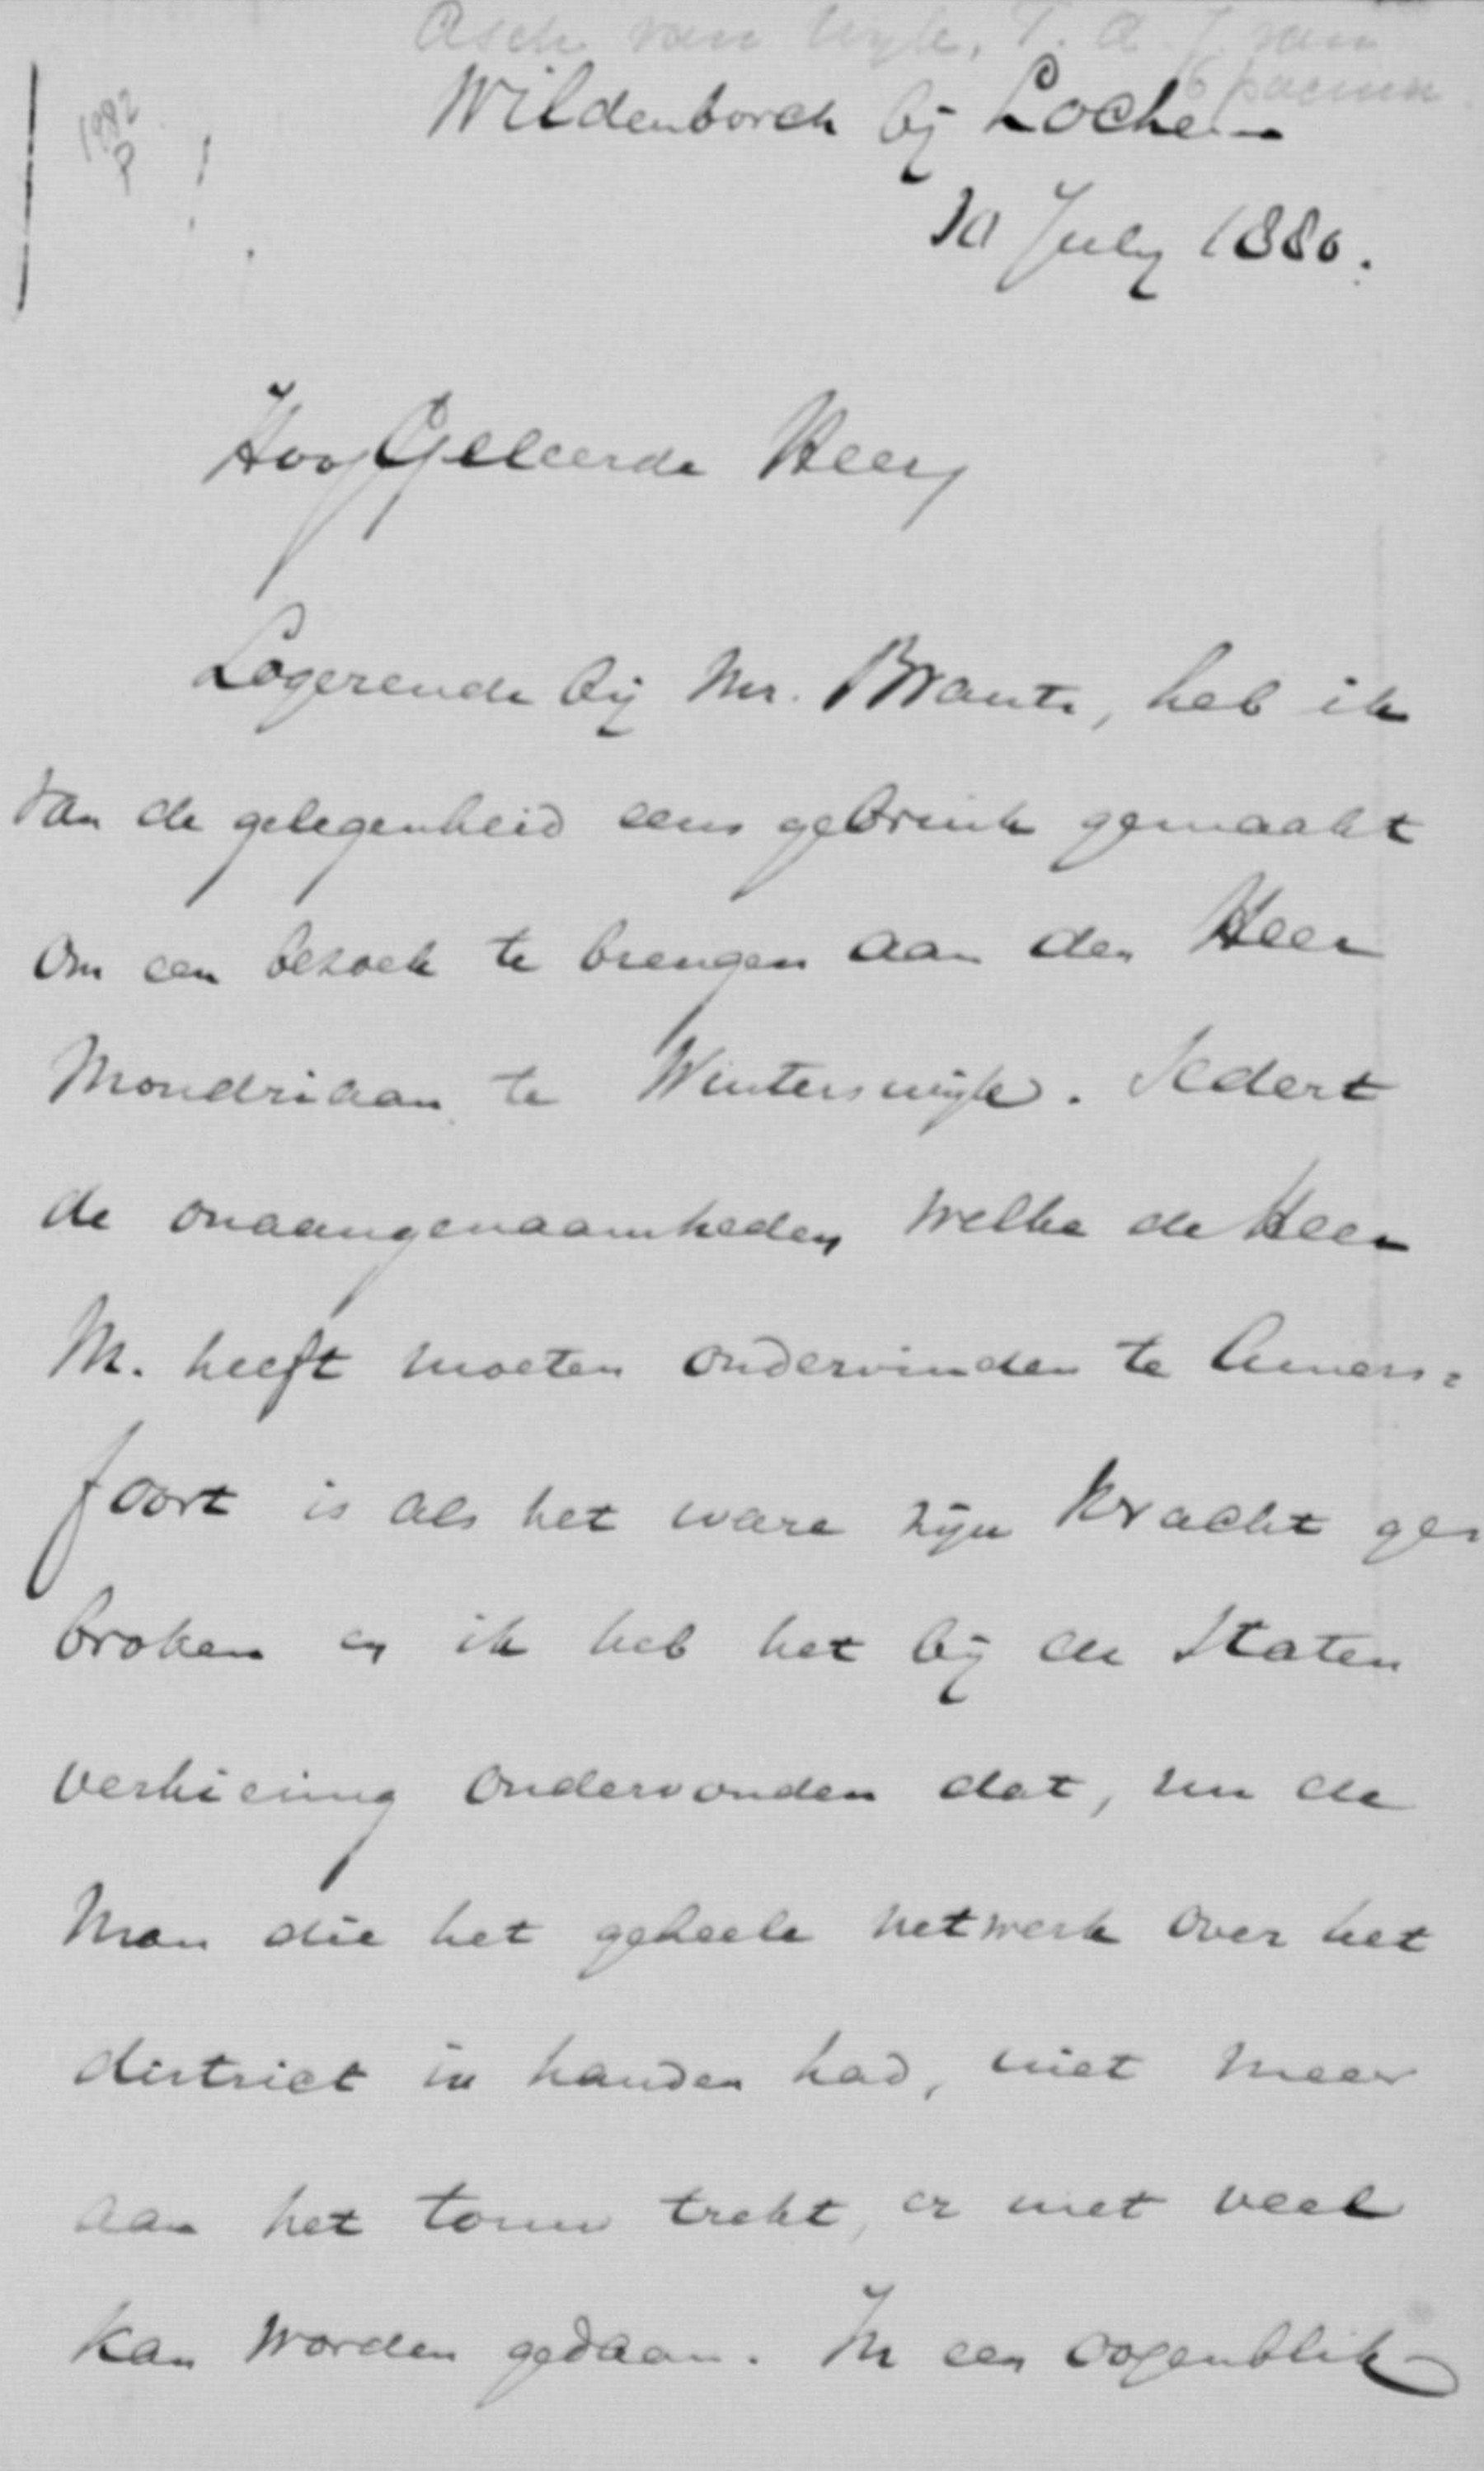 Asch van Wyk, T. A. J. van
Wildenborch bij Lochem
10 July 1880.
HoogGeleerde Heer,
Logerende bij Mr. Brants, heb ik
van de gelegenheid eens gebruik gemaakt
om een bezoek te brengen aan den Heer
Mondriaan te Winterswijk. Sedert
de onaangenaamheden welke de Heer
M. heeft moeten ondervinden te Amers=
foort is als het ware zijn kracht ge=
broken en ik heb het bij de Staten
verkiezing ondervonden dat, nu de
man die het geheele netwerk over het
district in handen had, niet meer
aan het touw trekt, er niet veel
kan worden gedaan. In een oogenblik